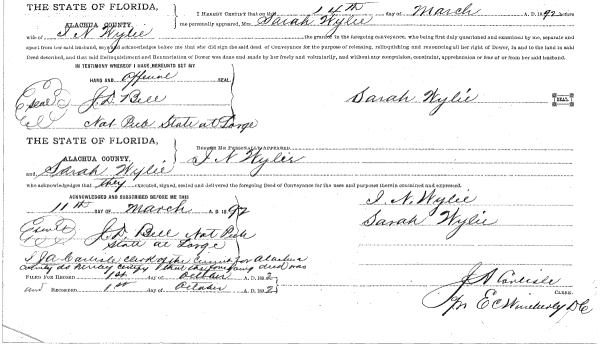 THE STATE OF FLORIDA,
ALACHUA COUNTY.
I HEREBY CERTIFY that on this 14th day of March A. D. 1892 before
me personally appeared, Mrs. Sarah Wylie
wife of I N Wylie the grantor in the foregoing conveyance, who being first duly questioned and examined by me, separate and
apart from her said husband, acknowledged before me that she did sign the said deed of Conveyance for the purpose of releasing, relinquishing and renouncing all her right of Dower, in and to the land in said
Deed described, and that said Relinquishment and Renunciation of Dower was done and made by her freely and voluntarily, and without any compulsion, constraint, apprehension or fear of or from her said husband.
IN TESTIMONY WHEREOF I HAVE HEREUNTO SET MY
HAND AND official SEAL
Seal J. D. Bell Sarah Wylie SEAL
Not Pub State at Large
THE STATE OF FLORIDA,
ALACHUA COUNTY,
BEFORE ME PERSONALLY APPEARED I N Wylie
and Sarah Wylie
who acknowledges that they executed, signed, sealed and delivered the foregoing Deed of Conveyance for the uses and purposes therein contained and expressed.
ACKNOWLEDGED AND SUBSCRIBED BEFORE ME THIS
11th DAY OF March A. D. 1892
I. N. Wylie
Sarah Wylie
Seal J. D. Bell Not Pub
State at Large
I J A Carlisle clerk of the Circuit for Alachua
county do hereby certify that the foregoing deed was
FILED FOR RECORD 1st day of October A. D. 1892
and RECORDED 1st day of October A. D. 1892
J A Carlisle CLERK.
Pr E C Wimberly D C